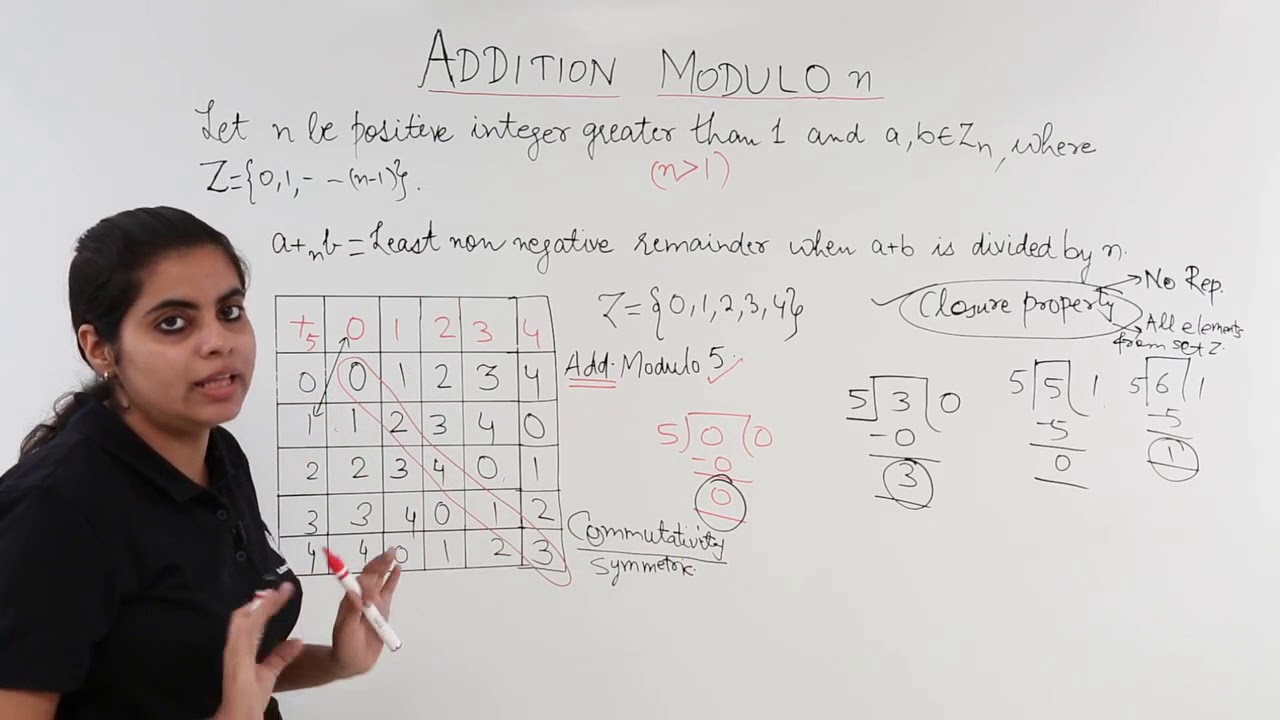 ADDITION MODULO n
Let n be positive integer greater than 1 and a, b ∈ Zn, where
Z = {0, 1, - - (n-1)}.
(n>1)
a +n b = Least non negative remainder when a+b is divided by n.
+5 0 1 2 3 4
0 0 1 2 3 4
1 1 2 3 4 0
2 2 3 4 0 1
3 3 4 0 1 2
4 4 0 1 2 3
Z = {0, 1, 2, 3, 4}
Add. Modulo 5
5 0 0
-0
0
Commutativity
Symmetric.
Closure property
No Rep.
All elements
from set Z.
5 3 0
-0
3
5 5 1
-5
0
5 6 1
-5
1